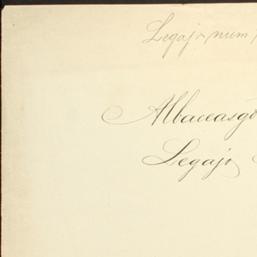 Legajo num
Albaceasgo
Legajo